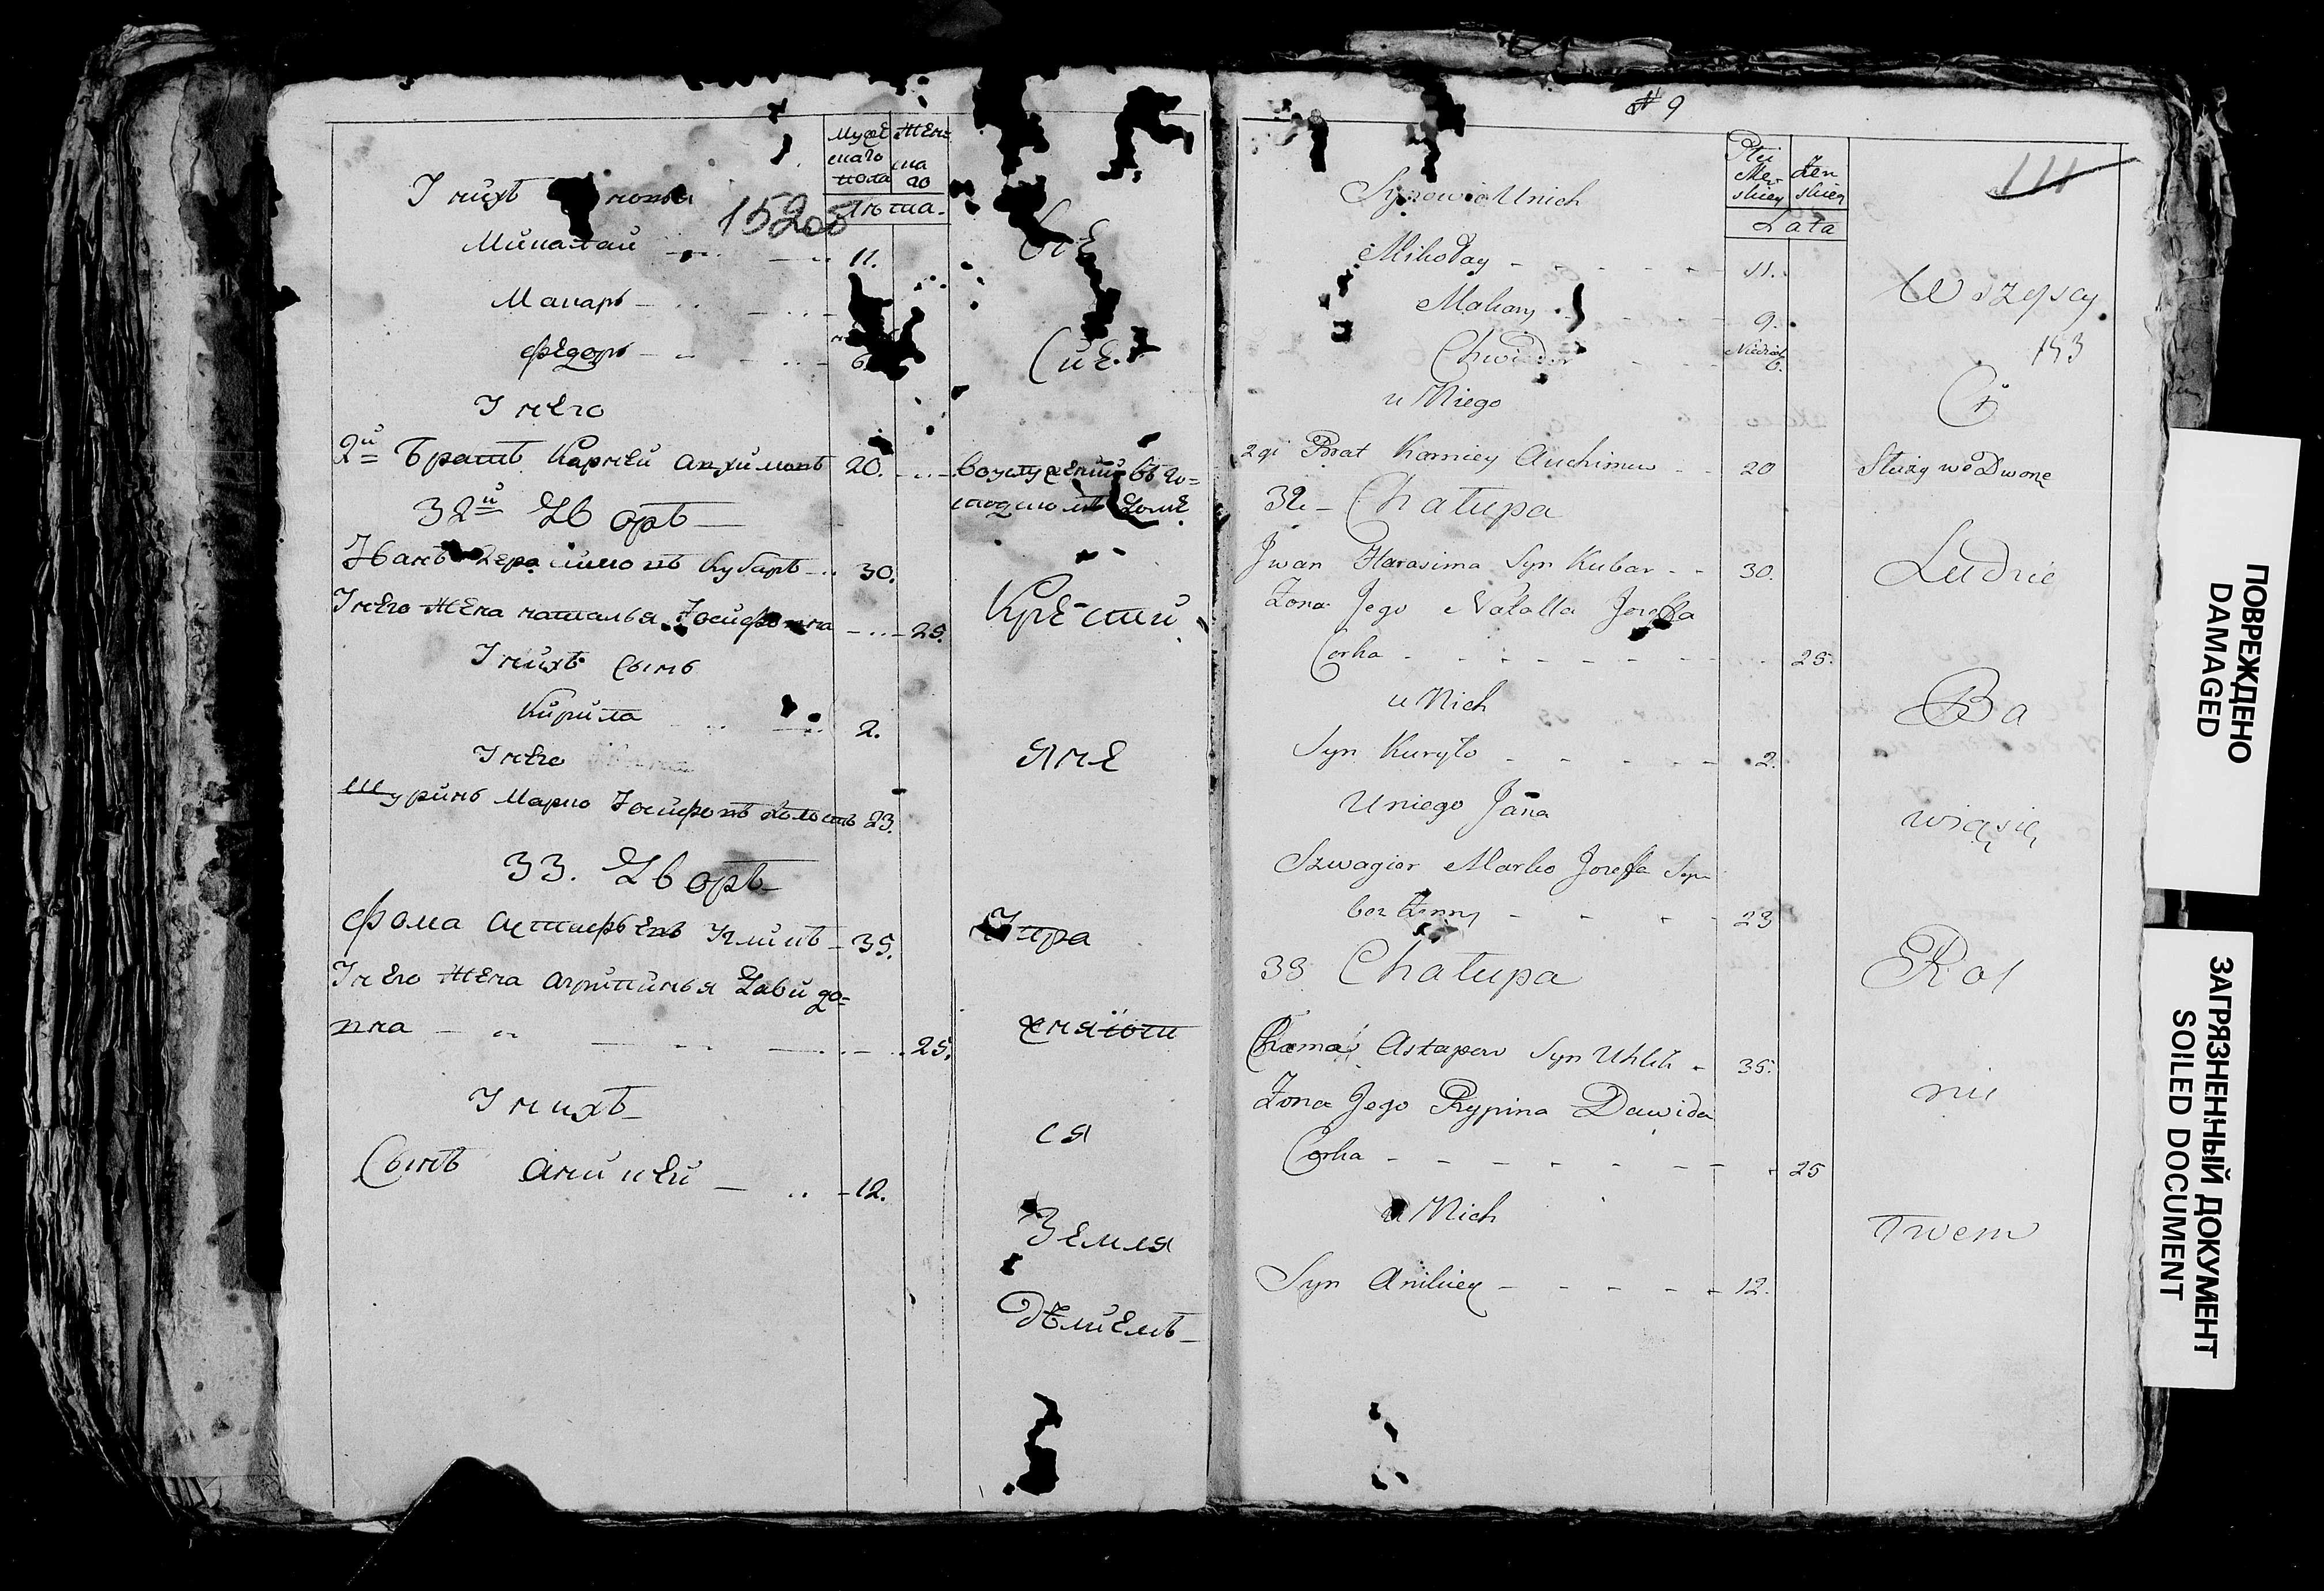 Муже
скаго
пола
Жен
ска
го
Лѣта
У нихъ
1520об
Микалай 11.
Макаръ
Федоръ 6.
У него
2й Братъ Карней Анхимовъ 20.
32й Дворъ
Иванъ Герасимовъ Кубаръ 30.
У него Жена Наталья Iосифовна 25.
У нихъ Сынъ
Кирила 2.
У него
Шуринъ Марко Iосифовъ холостъ 23.
33. Дворъ
Фома Астафьевъ 35.
У него Жена Агрипинья Давидо=
вна 25.
У нихъ
Сынъ Аникей 12.
Всѣ
Сиѣ
въ го=
сподскомъ Домѣ
Кре-стьи
яне
Упра
жняютъ
ся
Земля
Дѣлиемъ
№ 9
Płci
Męz
skiey
Żen
skiey
Lata
111
Synowie u nich
Mikołay 11.
Makary 9.
Chwiedor Niedziel 6.
u Niego
2gi Brat Karniey Auchimow 20
32 Chałupa
Jwan Harasima Syn Kubar 30.
Żona Jego Natalla Jozeffa
Corka 25.
u Nich
Syn Kuryło 2.
U niego Jana
Szwagier Marko Jozeffa Syn
bez Żenny 23
33 Chałupa
Chama Astapow Syn Uhlik 35.
Żona Jego Rypina Dawida
Corka 25
u Nich
Syn Anikiey 12.
Wszyscy
153
Ci
Służy we Dworze
Ludzie
Ba
wią się
Rol
nic
Twem
ПОВРЕЖДЕНО
DAMAGED
ЗАГРЯЗНЕННЫЙ ДОКУМЕНТ
SOILED DOCUMENT